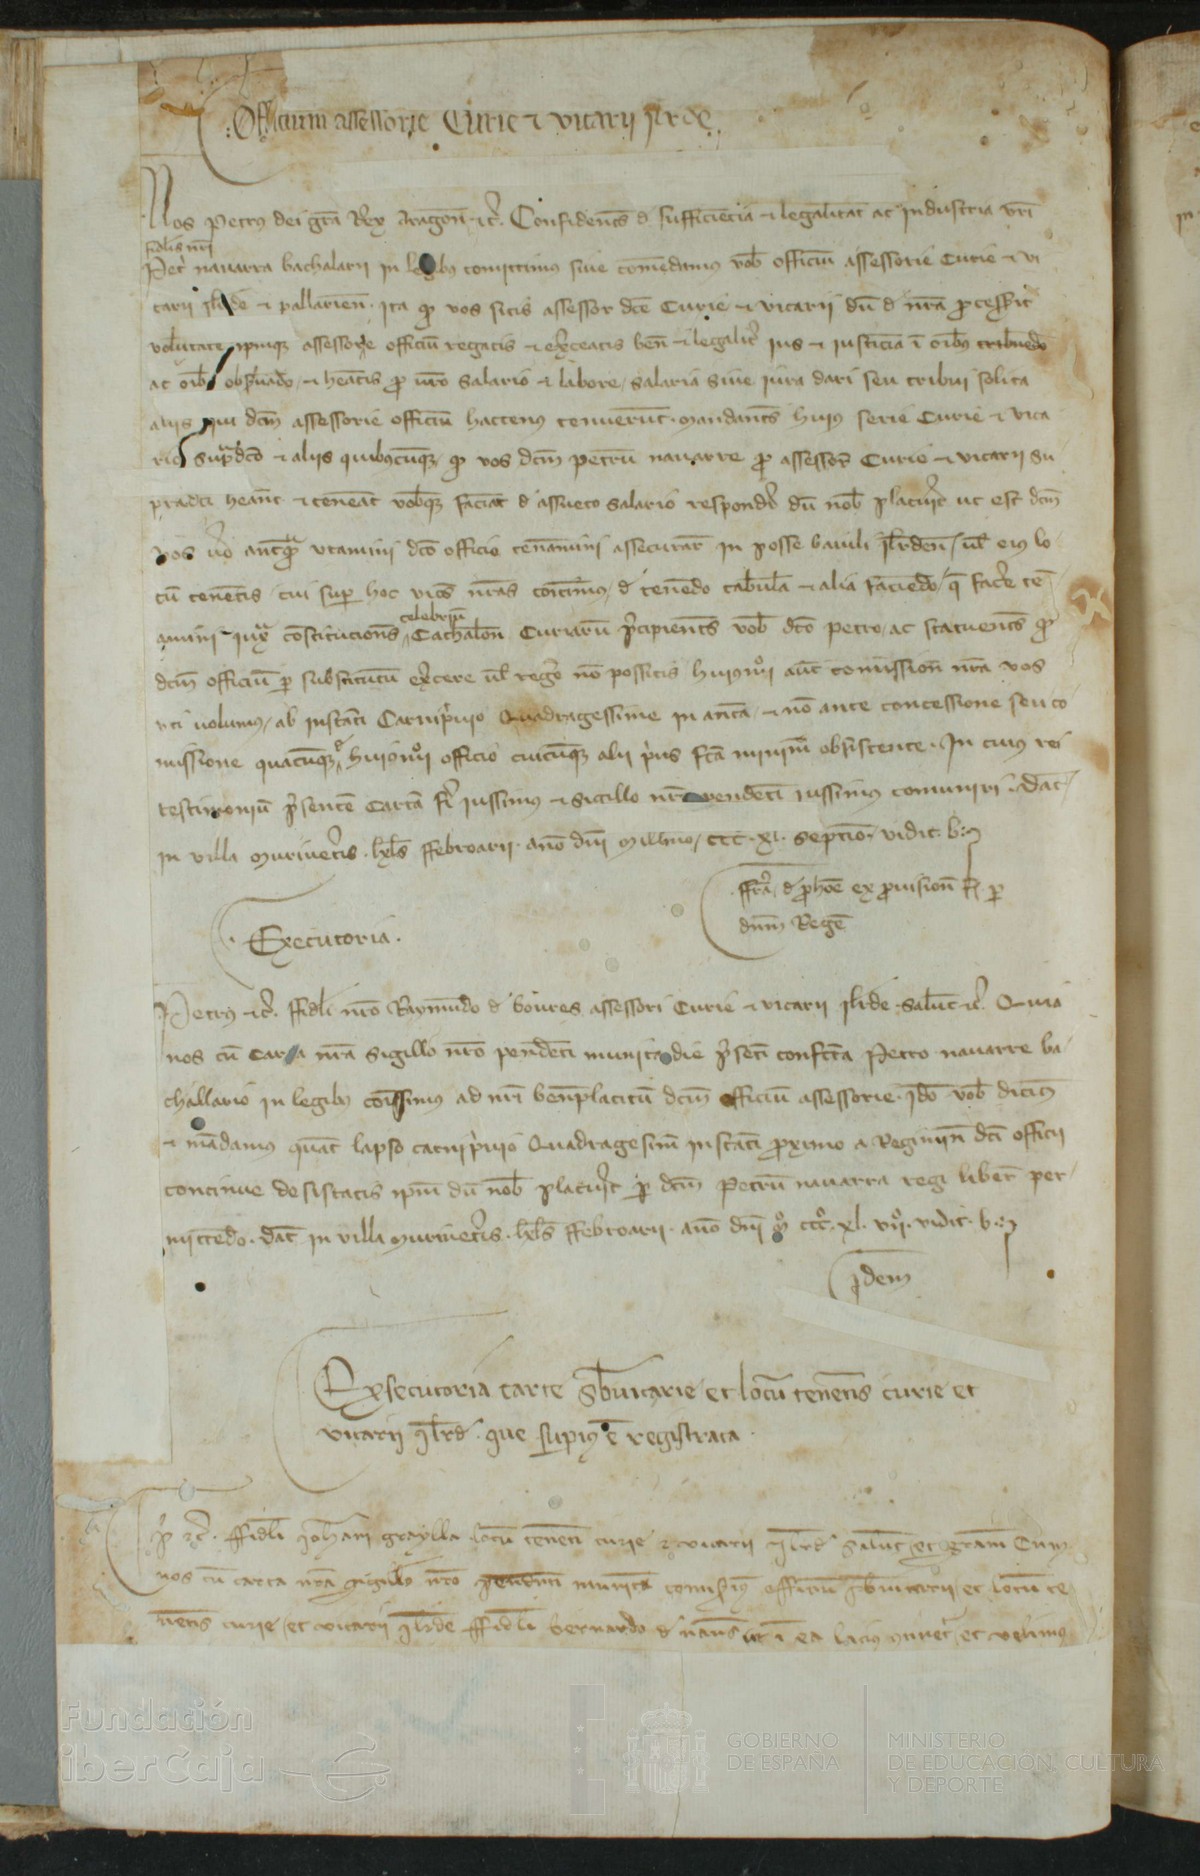 Officium assessorie Curie et vicarii Ilrde
Nos Petrus dei gra Rex Aragon etc. Confidentes de sufficiencia et legalitat ac industria vri
fidelis nri
Petri navarra bachalarii in legibus comittimus sive comendamus vob officium assessorie Curie et vi
carii Ilrde et pallarien. ita qd vos sitis assessor dce Curie et vicarii dum de nra processerit
voluntate ipmque assessorie officium regatis et exerceatis ben et legaliter ius et iusticiam in oibus tribuendo
ac observando et heatis pro vro salario et labore salaria sive iura dari seu tribui solita
aliis qui dcm assessorie officium hactenus tenuerunt. mandantes huius serie Curie et vica
rio supradco et aliis quibuscunque qd vos dcm Petrum navarre pro assessore Curie et vicarii su
pradci heant et teneant vobque faciant de assueto salario responderi dum nob placuerit ut est dcm
vos vero antequam utamini dco officio teneamini assecurare in posse baiuli Ilrden vel eius lo
cum tenentis cui super hoc vices nras comittimus de tenendo tabulam et alia faciendo que facere te
celebrium
amini iuxta constituciones Cathalon Curiarum precipientes vob dco Petro ac statuentes qd
dcm officium per substitutum exercere vel regere non possitis huiusmodi aut comission nra vos
uti volumus ab instanti Carniprivio Quadragessime in antea et non ante concessione seu co
missione quacunque de huiusmodi officio cuicunque alii prius fca minime obsistente. In cuius rei
testimonium presentem Cartam fieri iussimus et sigillo nro pendenti iussimus comuniri. Dat
in villa Muriveteris. kls ffebroarii. ano dni Millmo CCC XL septimo. vidit b.
ffra de phoe ex provisione fca per
dnm Regem
Executoria.
Petrus etc. ffideli nro Raymundo de boures assessori Curie et vicarii Ilrde. Salutem etc. Quia
nos cum Carta nra sigillo nro pendenti munita die presenti confecta Petro navarre ba
challario in legibus comissimus ad nri beneplacitum dcm officium assessorie. Ideo vob dicimus
et mandamus quatenus lapso carniprivio Quadragesime instanti proximo a Regimine dci officii
continue desistatis ipm dum nob placuerit per dcm Petrum navarra regi libere per
mittendo. dat in villa Muriveteris. kls ffebroarii. ano dni Mo CCCo XL VIIo. vidit b.
Idem
Exsecutoria carte subvicarie et locum tenentis curie et
vicarii Ilrd. que superius est registrata
P etc. ffideli Iohanni graylla locum tenenti curie et vicarii Ilrd salutem et gram Cum
nos cum carta nra sigillo nro pendenti munita comiserimus officium subvicarii et locum te
nentis curie et vicarii Ilrde ffideli bernardo de ut in ea lacius continetur et velimus
Fundación
iberCaja
GOBIERNO
DE ESPAÑA
MINISTERIO
DE EDUCACIÓN, CULTURA
Y DEPORTE